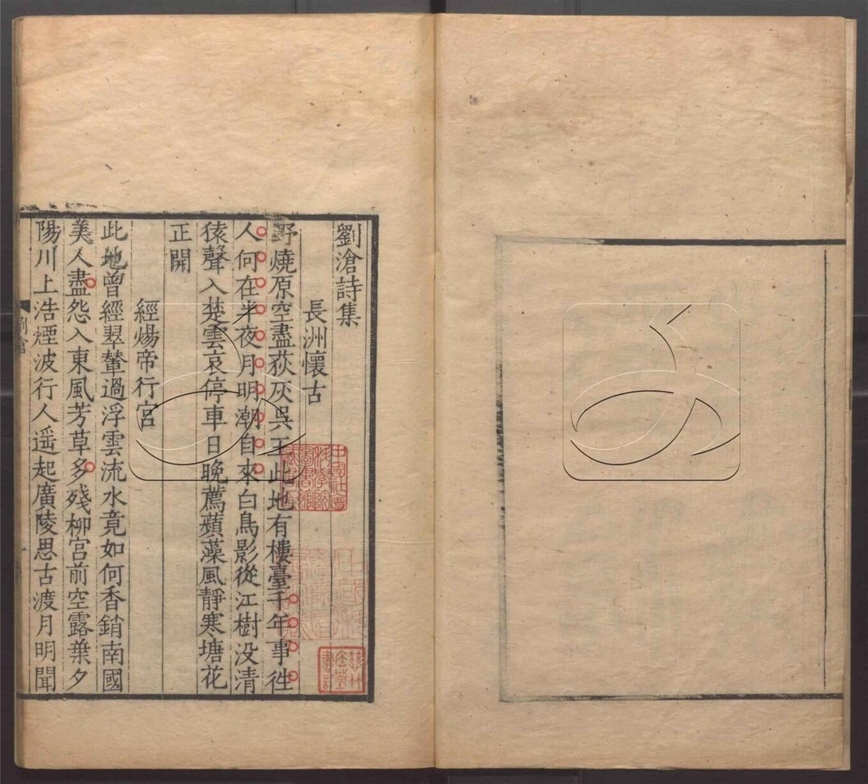 劉滄詩集
長洲懷古
野燒原空盡荻灰吳王此地有樓臺千年事徃
人何在半夜月明潮自來白鳥影從江樹没清
猿聲入楚雲哀停車日晚薦蘋藻風靜寒塘花
正開
經煬帝行宮
此地曾經翠輦過浮雲流水竟如何香銷南國
美人盡怨入東風芳草多殘柳宫前空露葉夕
陽川上浩煙波行人遥起廣陵思古渡月明聞
劉滄